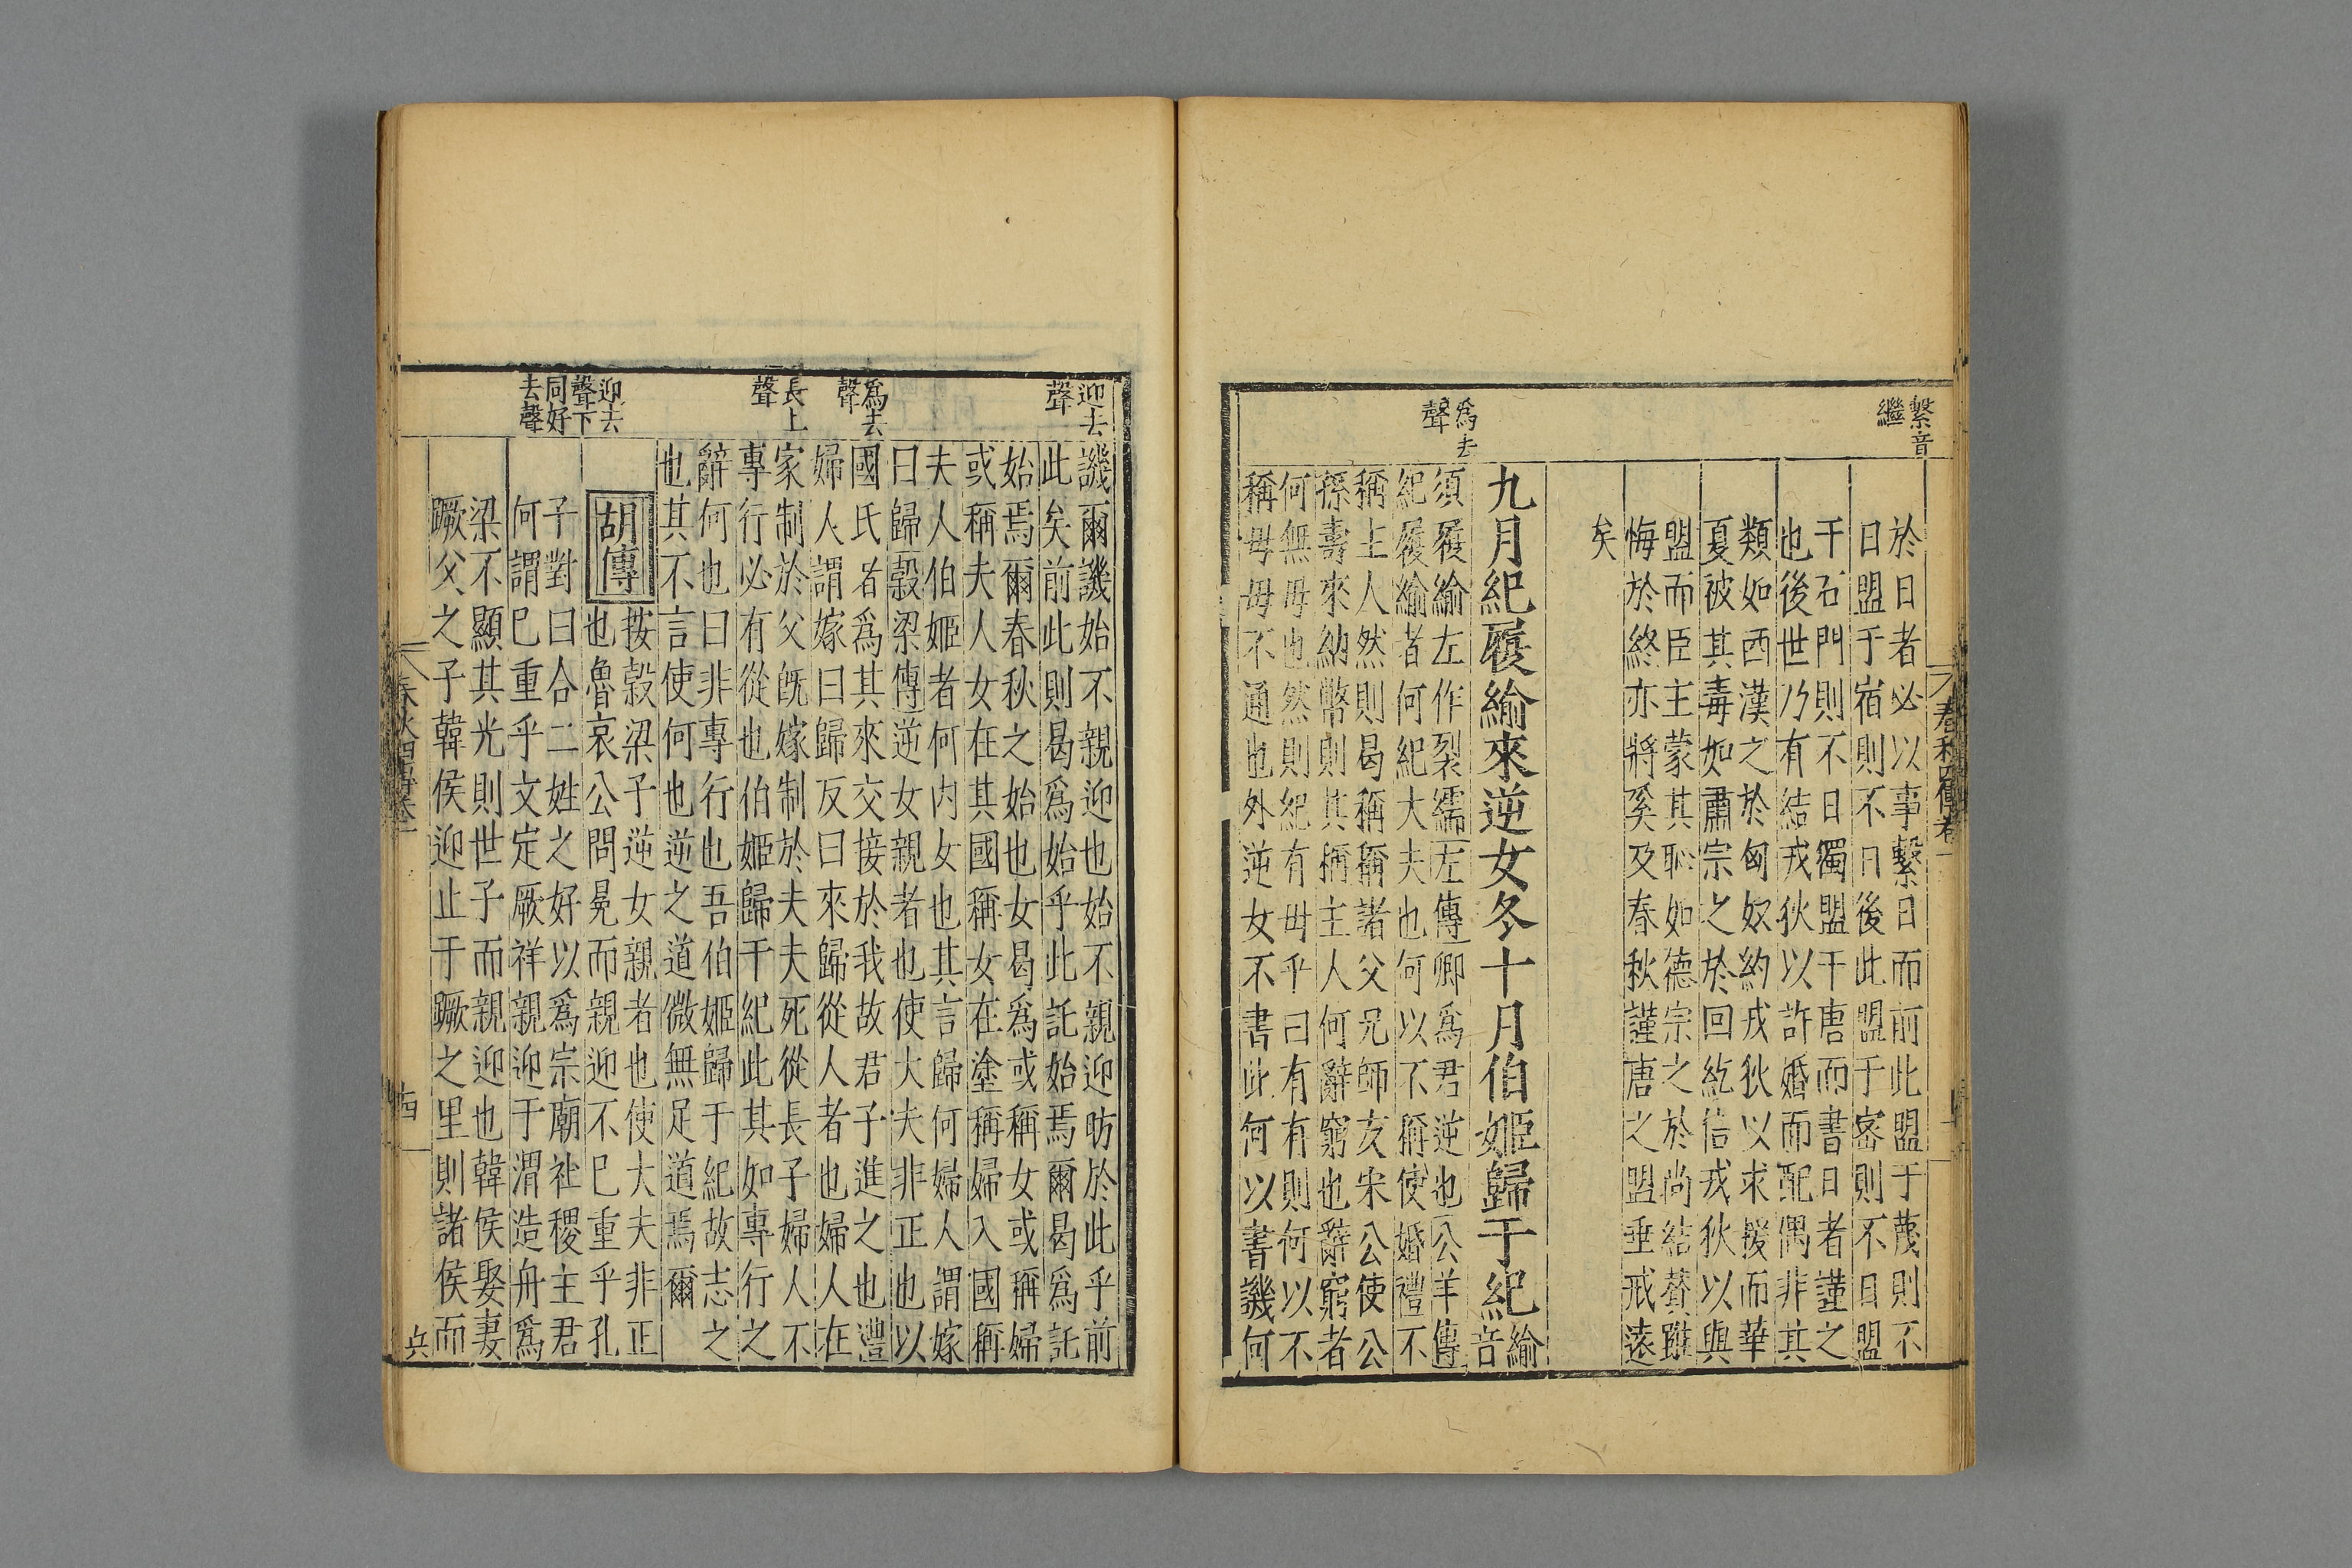 繫音
繼
爲去
聲
於日者必以事繫日而前此盟于蔑則不
日盟于宿則不日後此盟于密則不日盟
于石門則不日獨盟于唐而書日者謹之
也後世乃有結戎狄以許婚而配偶非其
類如西漢之於匈奴約戎狄以求援而華
夏被其毒如肅宗之於回紇信戎狄以與
盟而臣主蒙其恥如德宗之於尚結贊雖
悔於終亦將奚及春秋謹唐之盟垂戒遠
矣
九月紀履緰來逆女冬十月伯姬歸于紀緰
音
須履緰左作裂繻左傳卿爲君逆也公羊傳
紀履緰者何紀大夫也何以不稱使婚禮不
稱主人然則曷稱稱諸父兄師友宋公使公
孫壽來納幣則其稱主人何辭窮也辭窮者
何無母也然則紀有母乎曰有有則何以不
稱母母不通也外逆女不書此何以書譏何
迎去
聲
爲去
聲
長上
聲
迎去
聲下
同好
去聲
譏爾譏始不親迎也始不親迎昉於此乎前
此矣前此則曷爲始乎此託始焉爾曷爲託
始焉爾春秋之始也女曷爲或稱女或稱婦
或稱夫人女在其國稱女在塗稱婦入國稱
夫人伯姬者何內女也其言歸何婦人謂嫁
曰歸穀梁傳逆女親者也使大夫非正也以
國氏者爲其來交接於我故君子進之也禮
婦人謂嫁曰歸反曰來歸從人者也婦人在
家制於父旣嫁制於夫夫死從長子婦人不
專行必有從也伯姬歸于紀此其如專行之
辭何也曰非專行也吾伯姬歸于紀故志之
也其不言使何也逆之道微無足道焉爾
胡傳
按穀梁子逆女親者也使大夫非正
也魯哀公問冕而親迎不巳重乎孔
子對曰合二姓之好以爲宗廟社稷主君
何謂巳重乎文定厥祥親迎于渭造舟爲
梁不顯其光則世子而親迎也韓侯娶妻
蹶父之子韓侯迎止于蹶之里則諸侯而
四
兵